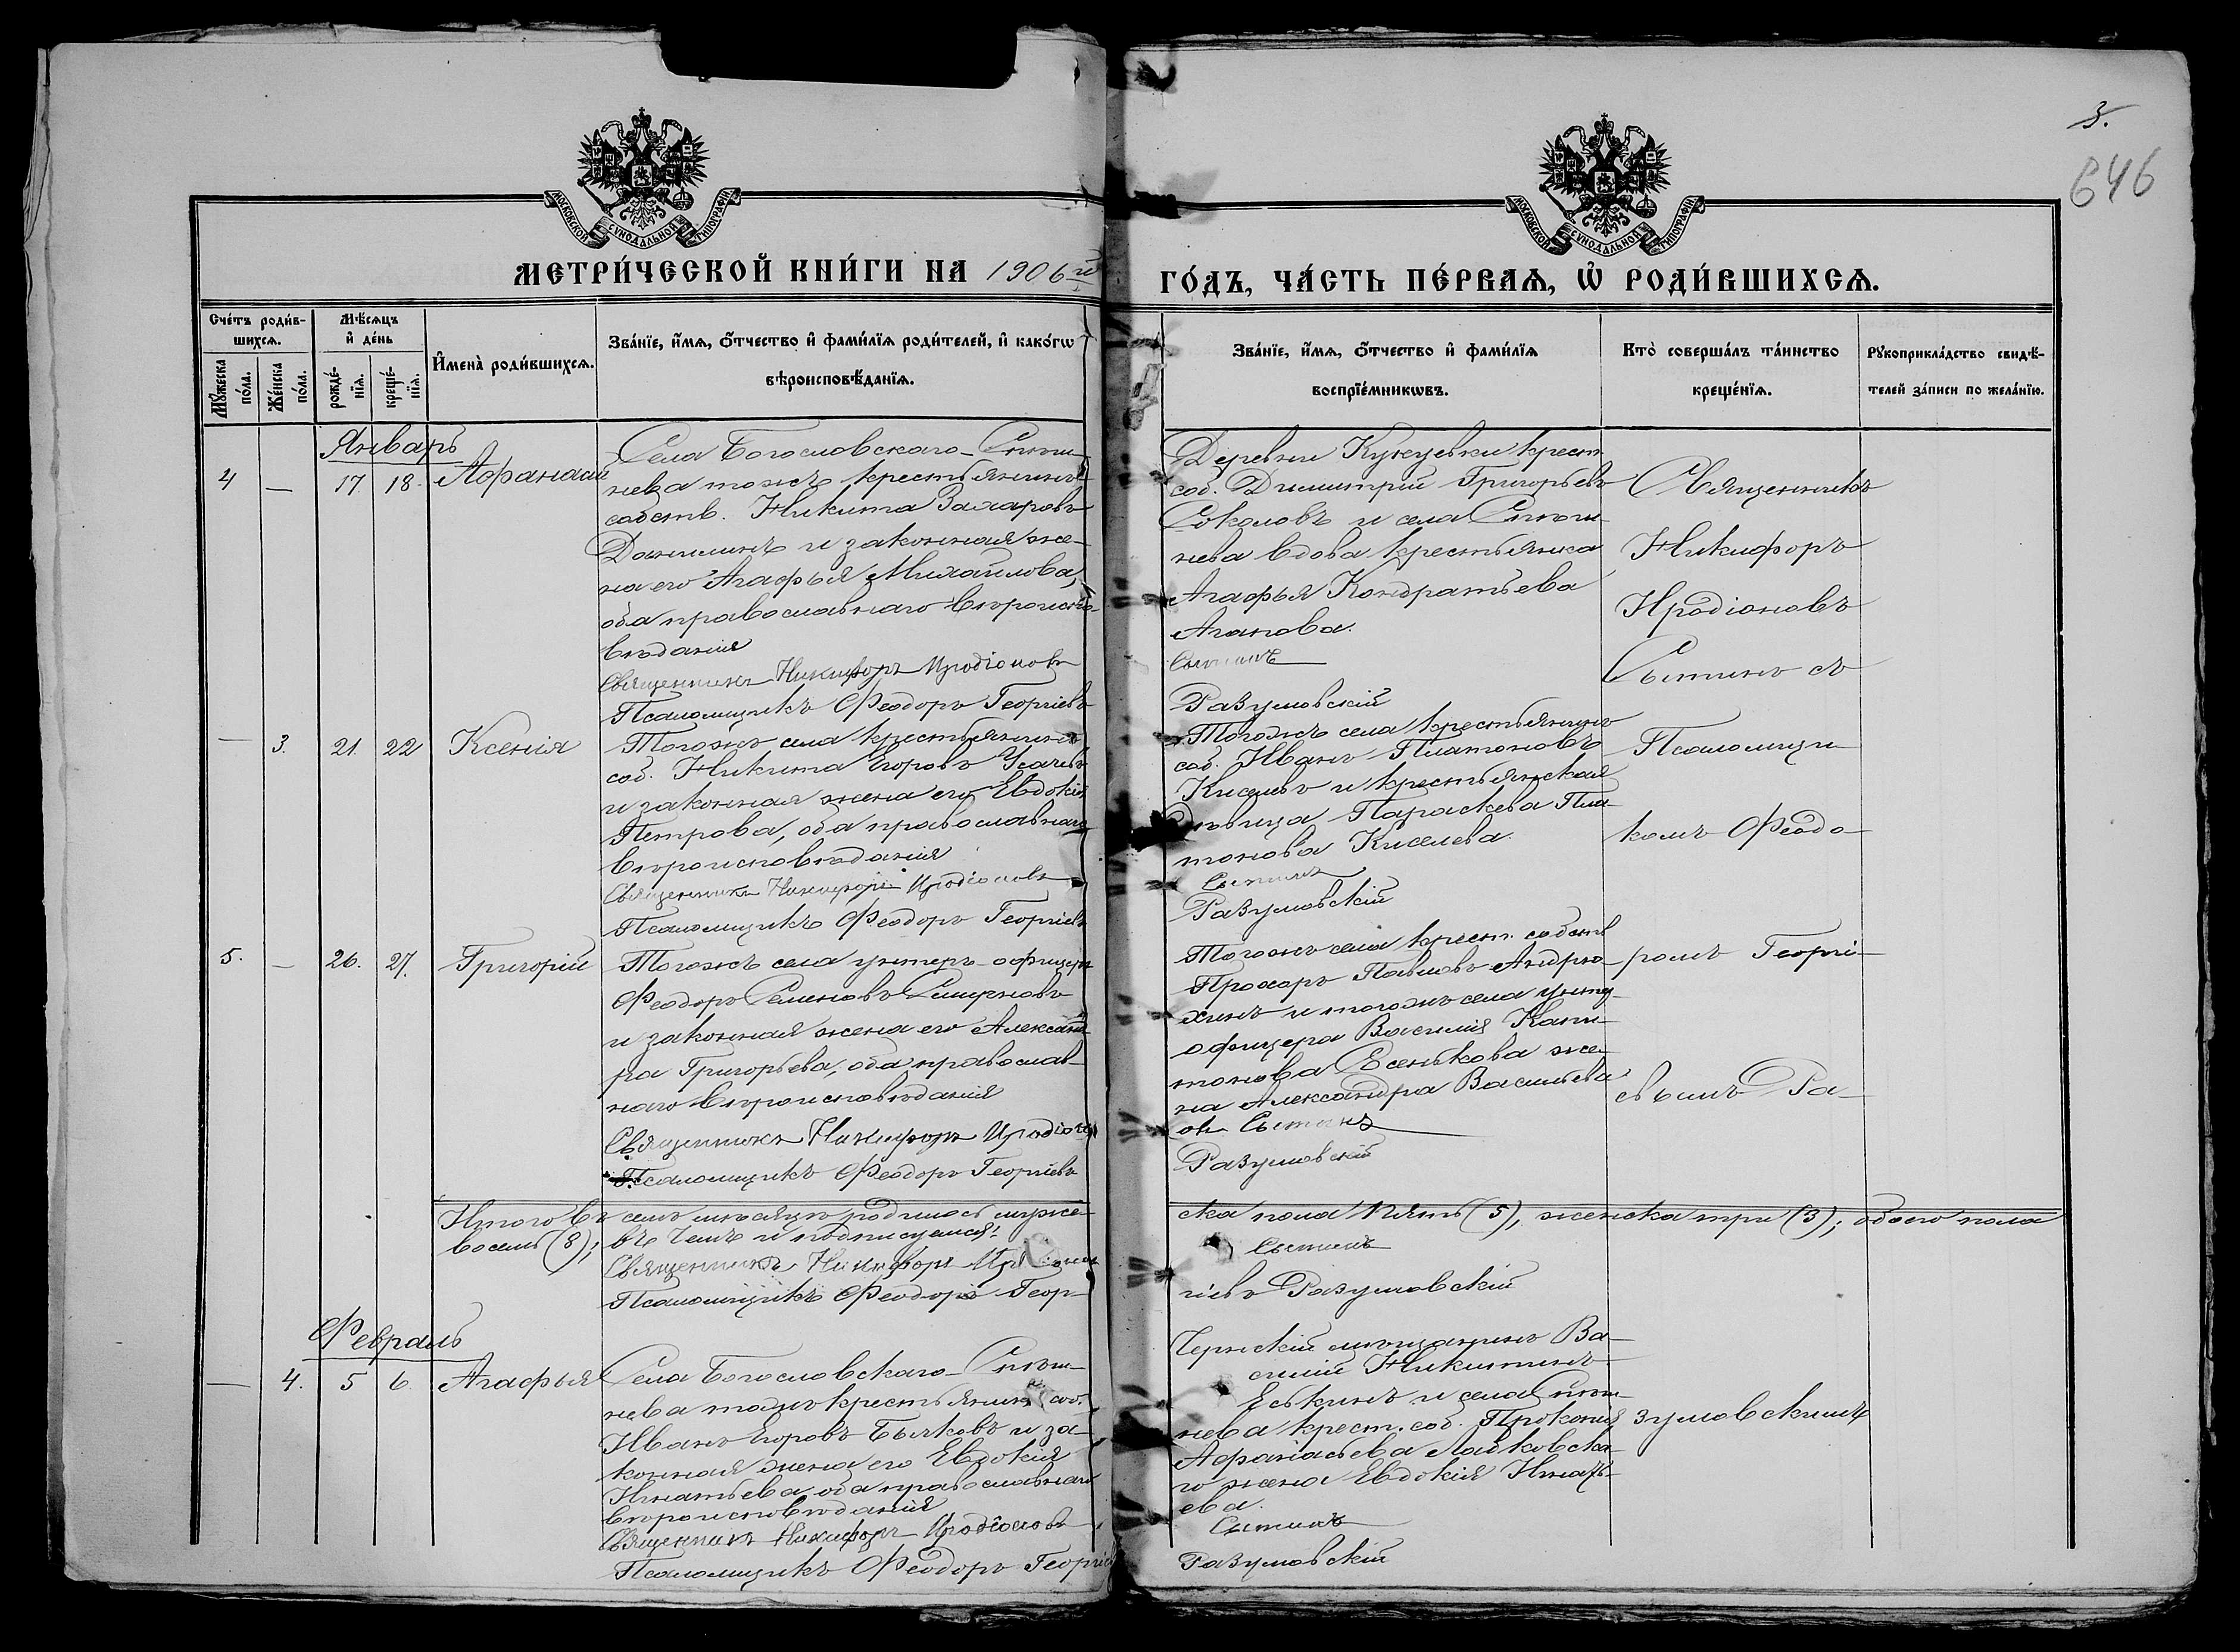 3.
646
МОСКОВСКОЙ СѴНОДАЛЬНОЙ ТИПОГРАФІИ
МОСКОВСКОЙ СѴНОДАЛЬНОЙ ТИПОГРАФІИ
МЕТРИ́ЧЕСКОЙ КНИ́ГИ НА 1906й
ГО́ДЪ, ЧА́СТЬ ПЕ́РВАѦ, Ѡ҆ РОДИ́ВШИХСѦ.
Сче́тъ роди́в-
шихсѧ.
Мꙋ́жеска по́ла.
Же́нска по́ла.
Мѣ́сѧцъ
и҆ де́нь
рожде́-
нїѧ.
креще́-
нїѧ.
И҆мена̀ роди́вшихсѧ.
Зва́нїе, и҆́мѧ, ѻ҆́тчество и҆ фами́лїѧ роди́телей, и҆ како́гѡ
вѣроисповѣ́данїѧ.
Зва́нїе, и҆́мѧ, ѻ҆́тчество и҆ фами́лїѧ
воспрїе́мникѡвъ.
Кто̀ соверша́лъ та́инство
креще́нїѧ.
Рꙋкоприкла́дство свидѣ́-
телей за́писи по жела́нїю.
Январь
4 — 17. 18. Афанасій
Села Богословскаго-Спѣш-
нева тожъ крестьянинъ
собств. Никита Захаровъ
Данилинъ и законная же-
на его Агафья Михайлова,
оба православнаго вѣроиспо-
вѣданія
Священникъ Никифоръ Иродіоновъ
Псаломщикъ Феодоръ Георгіевъ
Деревни Кукуевки крест.
соб. Димитрій Григорьевъ
Соколовъ и села Спѣш-
нева вдова крестьянка
Агафья Кондратьева
Агапова.
Сытинъ
Разумовскій
Священникъ
Никифоръ
Иродіоновъ
Сытинъ съ
Псаломщи-
комъ Феодо-
ромъ Георгі-
евымъ Ра-
зумовскимъ
— 3. 21. 22 Ксенія
Тогожъ села крестьянинъ
соб. Никита Егоровъ Усачевъ
и законная жена его Евдокія
Петрова, оба православнаго
вѣроисповѣданія
Священникъ Никифоръ Иродіоновъ
Псаломщикъ Феодоръ Георгіевъ
Тогожъ села крестьянинъ
соб. Иванъ Платоновъ
Киселевъ и крестьянская
дѣвица Параскева Пла-
тонова Киселева.
Сытинъ
Разумовскій
5. — 26. 27. Григорій
Тогожъ села унтеръ-офицеръ
Феодоръ Семеновъ Смирновъ
и законная жена его Александ-
ра Григорьева, оба православ-
наго вѣроисповѣданія
Священникъ Никифоръ Иродіон
Псаломщикъ Феодоръ Георгіевъ
Тогожъ села крест. собств
Прохоръ Павловъ Андрю-
хинъ и тогожъ села унтер-
офицера Василія Капи-
тонова Есенькова же-
на Александра Васильева
овъ Сытинъ
Разумовскій
Итого въ семъ мѣсяцѣ родилось муже-
ска пола пять (5), женска три (3); обоего пола
восемь (8); въ чемъ и подписуемся:
Священникъ Никифоръ Иродіонов
Сытинъ
Псаломщикъ Феодоръ Геор-
гіевъ Разумовскій
Февраль
— 4. 5 6. Агафья
Села Богословскаго-Спѣш-
нева тожъ крестьянинъ соб.
Иванъ Егоровъ Бычковъ и за-
конная жена его Евдокія
Игнатьева оба православнаго
вѣроисповѣданія
Священникъ Никифоръ Иродіоновъ
Псаломщикъ Феодоръ Георгіев
Чернскій мѣщанинъ Ва-
силій Никитинъ
Еськинъ и села Спѣш-
нева крест. соб. Прокопія
Афанасьева
го жена Евдокія Игнать-
ева.
Сытинъ
Разумовскій